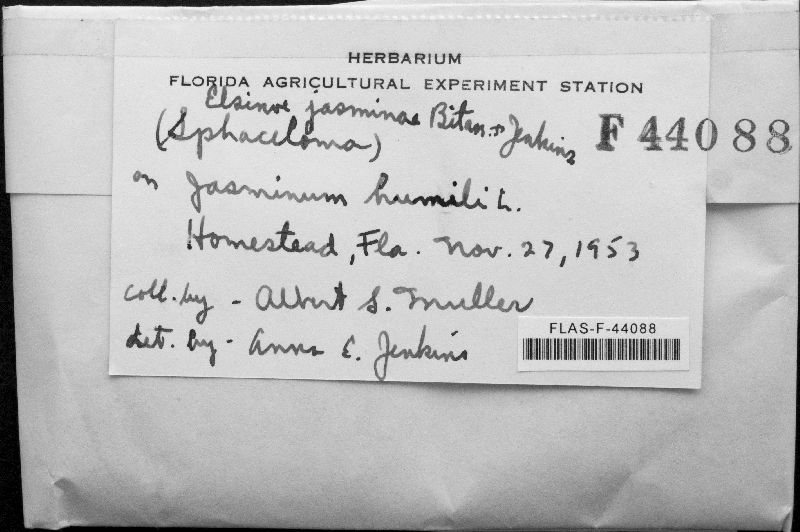 HERBARIUM
FLORIDA AGRICULTURAL EXPERIMENT STATION
Elsinoe jasminae Bitan. & Jenkins
F 44088
(Sphaceloma)
on Jasminum humili L.
Homestead, Fla. Nov. 27, 1953
coll. by - Albert S. Muller
det. by - Anna E. Jenkins
FLAS-F-44088